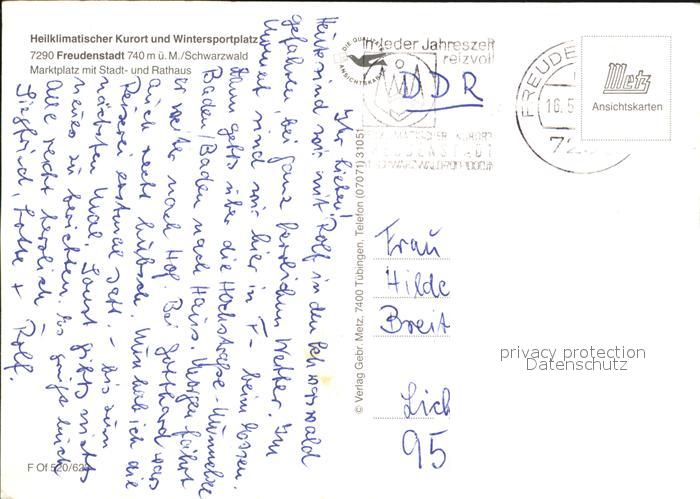 Heilklimatischer Kurort und Wintersportplatz
7290 Freudenstadt 740 m ü. M./Schwarzwald
Marktplatz mit Stadt- und Rathaus
Ihr Lieben!
Heute sind wir mit Rolf in den Schwarzwald
gefahren, bei ganz herrlichem Wetter. Im
Moment sind wir hier in F- beim Essen.
Dann gehts über die Hochstraße
Baden/Baden nach Haus. Morgen fährt
er weiter nach Hof. Bei Gotthard war
auch recht hübsch. Nun hab ich die
Reiserei erstmal satt. - bis zum
nächsten Mal. Sonst gibts nichts
neues zu berichten. Es grüßt Euch
Alle recht herzlich
Siegfried, Lotte + Rolf.
F Of 520/62
© Verlag Gebr. Metz, 7400 Tübingen, Telefon (07071) 31051
DIE GUTE
ANSICHTSKARTE
in jeder Jahreszeit
reizvoll
DDR
FREUDE
16.5
72
Metz
Ansichtskarten
Frau
Hilde
Breit
Lich
95
privacy protection
Datenschutz